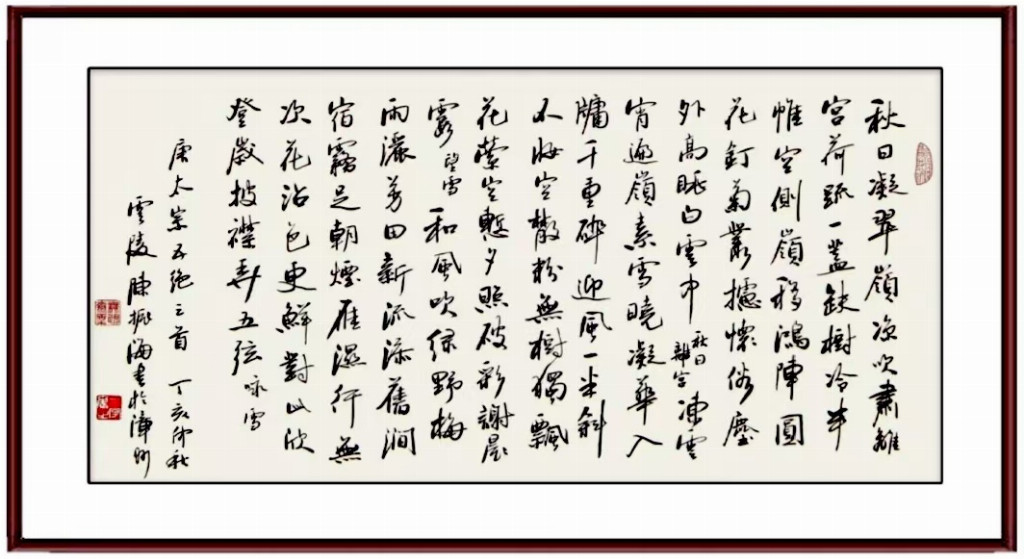 秋日凝翠嶺涼吹肅離
宮荷疏一蓋缺樹冷半
帷空側嶺移鴻陣圓
花釘菊叢攄懷俗塵
外高眺白雲中 秋日離宮 凍雲
宵遍嶺素雪曉凝華入
牖千重碎迎風一半斜
不妝空散粉無樹獨飄
花縈空慙夕照破彩謝晨
霞 望雪 和風吹綠野梅
雨灑芳田新流添舊澗
宿霧足朝煙雁濕行無
次花沾色更鮮對此欣
登歲披襟弄五弦 咏雪
唐太宗五絕三首 丁亥仲秋
雲陵陳振海書於漳州